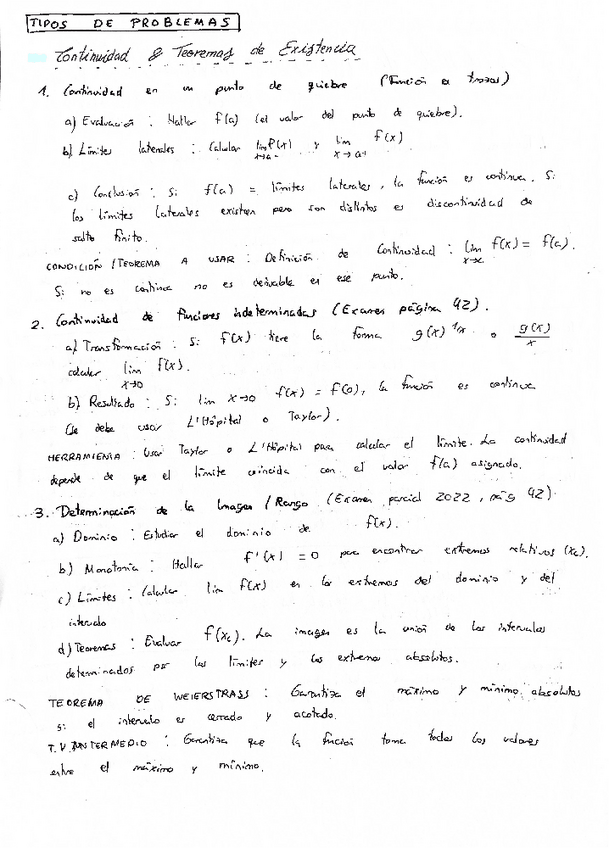 TIPOS DE PROBLEMAS
Continuidad & Teoremas de Existencia
1. Continuidad en un punto de quiebre (Función a trozos)
a) Evaluación : Hallar f(a) (el valor del punto de quiebre).
b) Límites laterales : Calcular lim x→a⁻ f(x) y lim x→a⁺ f(x)
c) Conclusión : Si f(a) = límites laterales, la función es continua. Si
los límites laterales existen pero son distintos es discontinuidad de
salto finito.
CONDICIÓN / TEOREMA A USAR : Definición de Continuidad : lim f(x) = f(a).
Si no es continua no es derivable en ese punto.
2. Continuidad de funciones indeterminadas (Examen página 42).
a) Transformación : Si f(x) tiene la forma g(x)^1/x o g(x)/x
calcular lim x→0 f(x).
b) Resultado : Si lim x→0 f(x) = f(0), la función es continua
(se debe usar L'Hôpital o Taylor).
HERRAMIENTA : Usar Taylor o L'Hôpital para calcular el límite. La continuidad
depende de que el límite coincida con el valor f(a) asignado.
3. Determinación de la Imagen / Rango (Examen parcial 2022, pág 42)
a) Dominio : Estudiar el dominio de f(x).
b) Monotonía : Hallar f'(x) = 0 para encontrar extremos relativos (xc).
c) Límites : Calcular lim f(x) en los extremos del dominio y del
intervalo
d) Teoremas : Evaluar f(xc). La imagen es la unión de los intervalos
determinados por los límites y los extremos absolutos.
TEOREMA DE WEIERSTRASS : Garantiza el máximo y mínimo absolutos
si el intervalo es cerrado y acotado.
T.V INTERMEDIO : Garantiza que la función toma todos los valores
entre el máximo y mínimo.